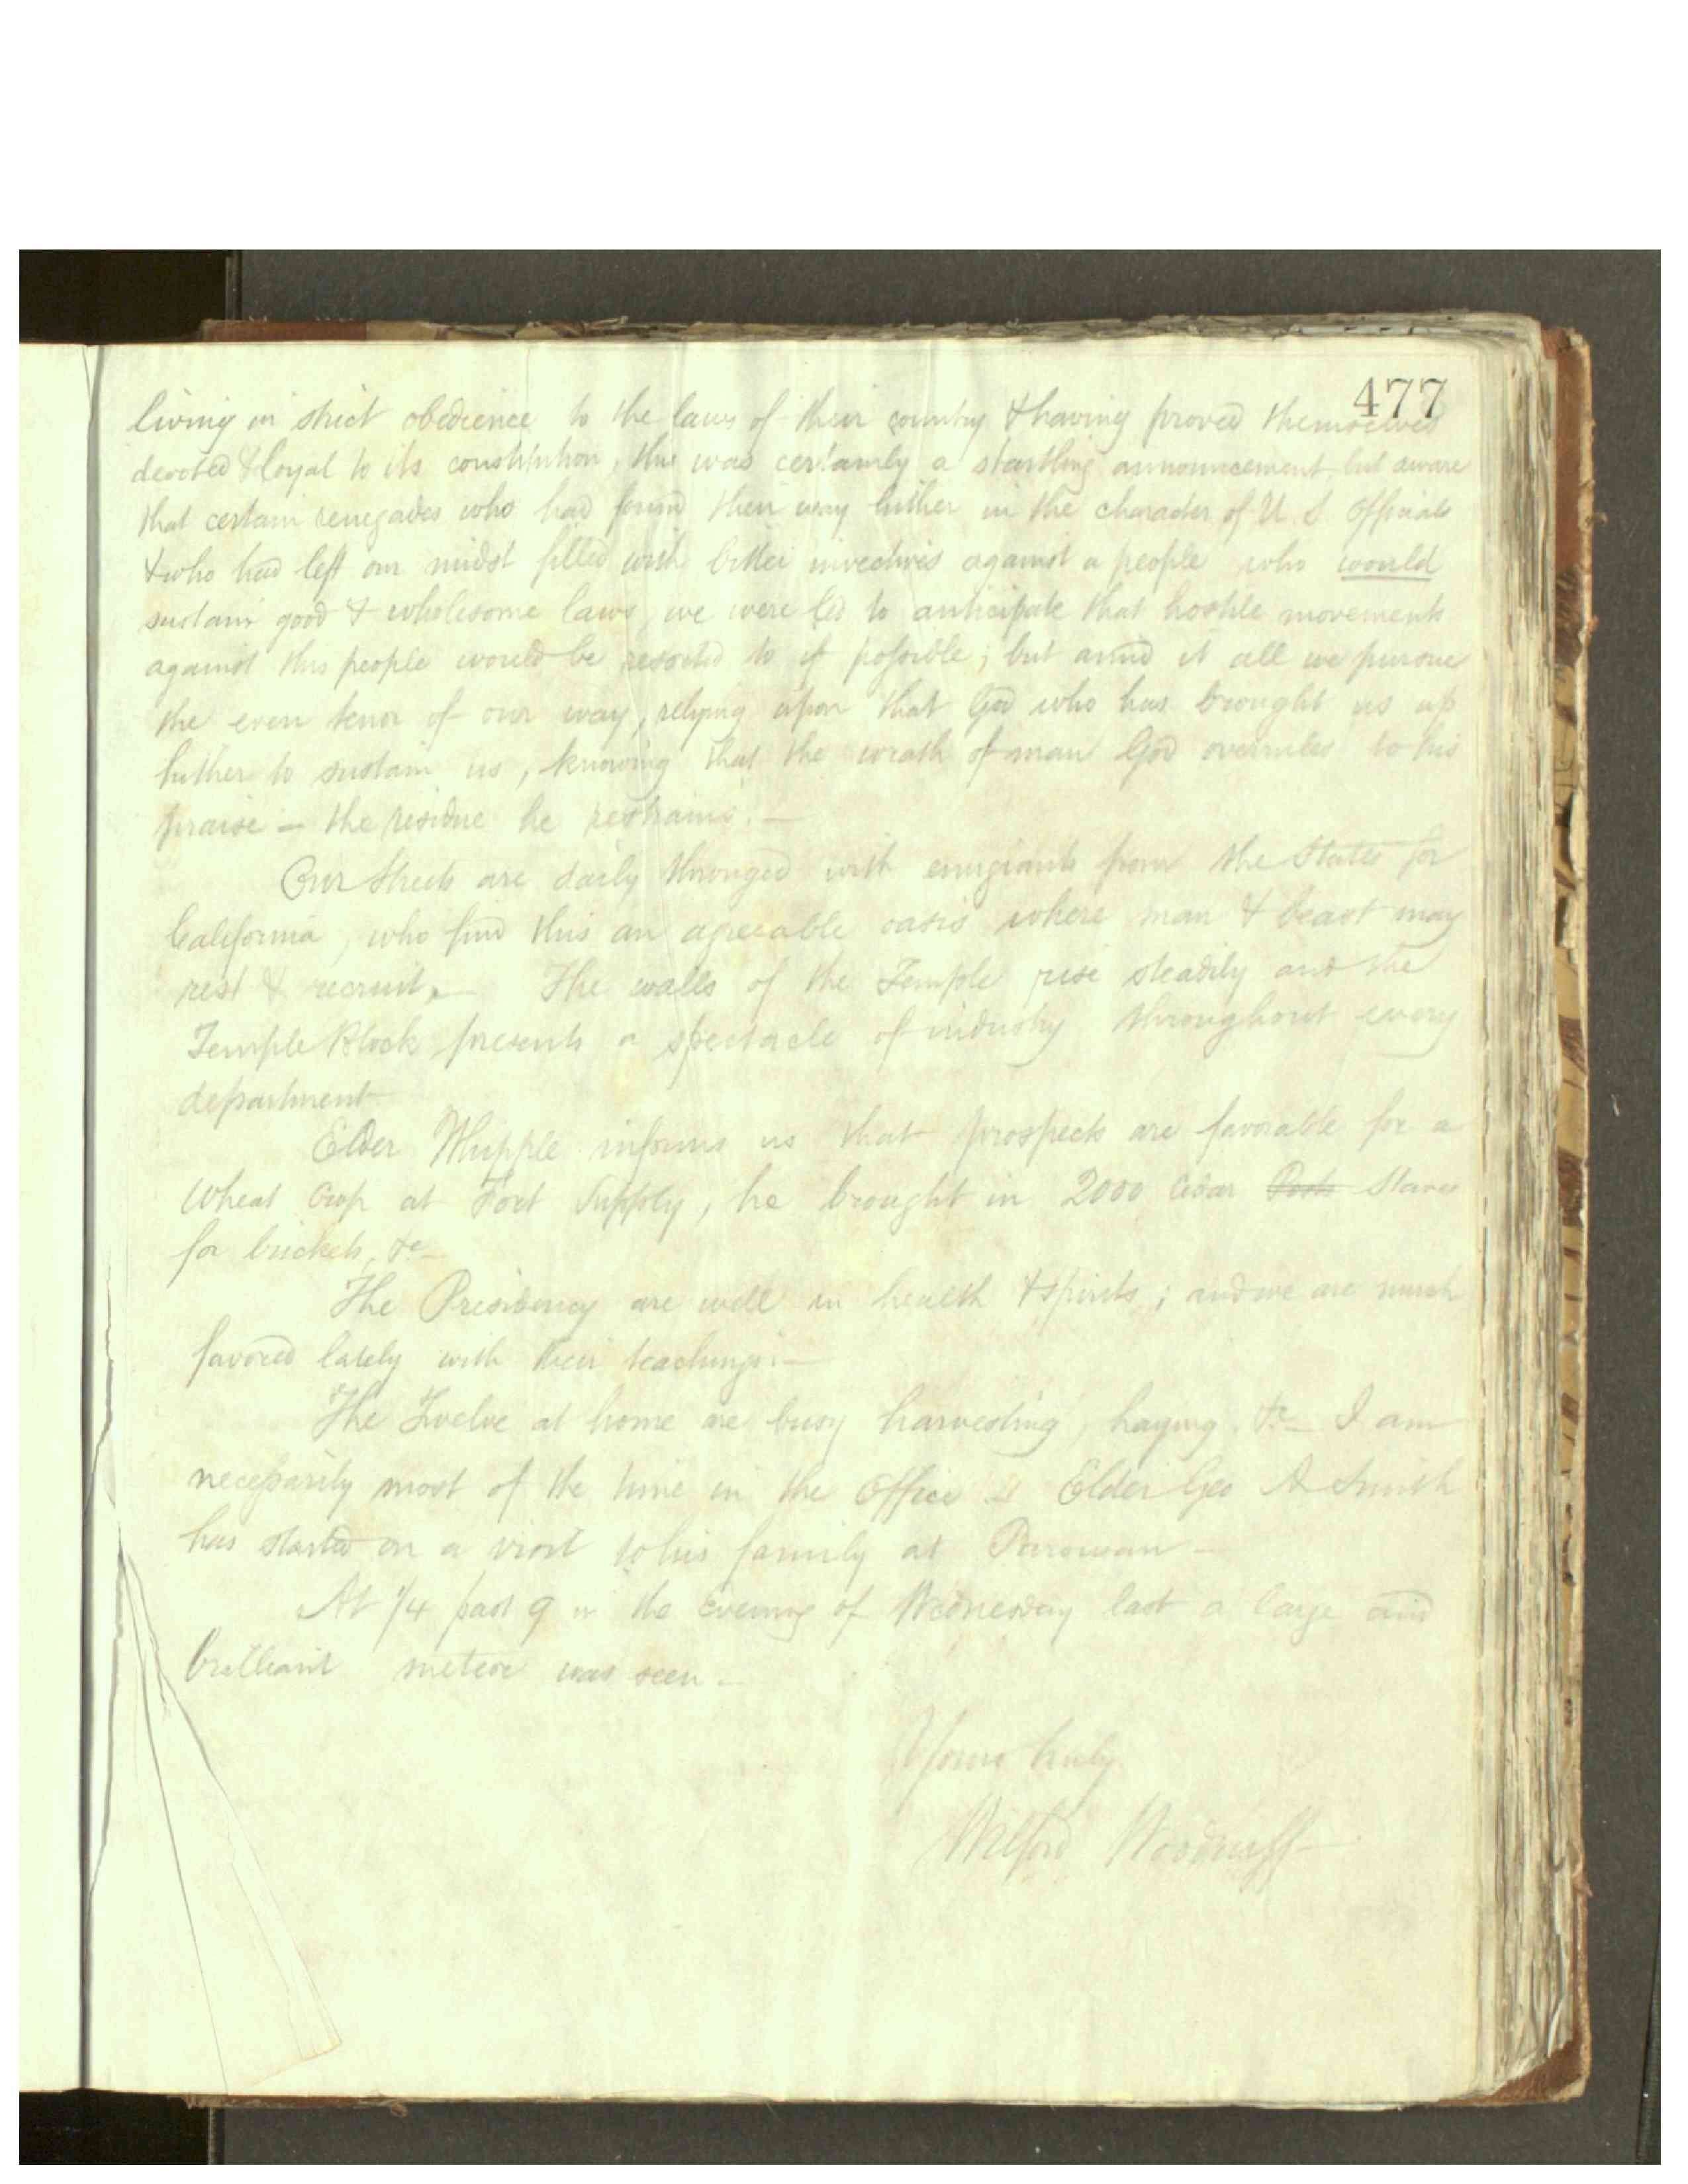 477
living in strict obedience to the laws of their country & having proved themselves
devoted & loyal to its constitution, this was certainly a startling announcement, but aware
that certain renegades who had found their way hither in the character of U S Officials
& who had left our midst filled with bitter invectives against a people who would
sustain good & wholesome laws, we were led to anticipate that hostile movements
against this people would be resorted to if possible; but amid it all we pursue
the even tenor of our way, relying upon that God who has brought us up
hither to sustain us, knowing that the wrath of man God overrules to his
praise – the residue he restrains. –
Our streets are daily thronged with emigrants from the States for
California, who find this an agreeable oasis where man & beast may
rest & recruit. – The walls of the Temple rise steadily and the
Temple Block presents a spectacle of industry throughout every
department
Elder Whipple informs us that prospects are favorable for a
wheat crop at Fort Supply, he brought in 2000 cedar Posts staves
for buckets, &c –
The Presidency are well in health & spirits; and we are much
favored lately with their teachings. –
The Twelve at home are busy harvesting, haying, &c – I am
necessarily most of the time in the Office Elder Geo A Smith
has started on a visit to his family at Parowan –
At 1/4 past 9 in the evening of Wednesday last a large and
brilliant meteor was seen –
Yours truly
Wilford Woodruff